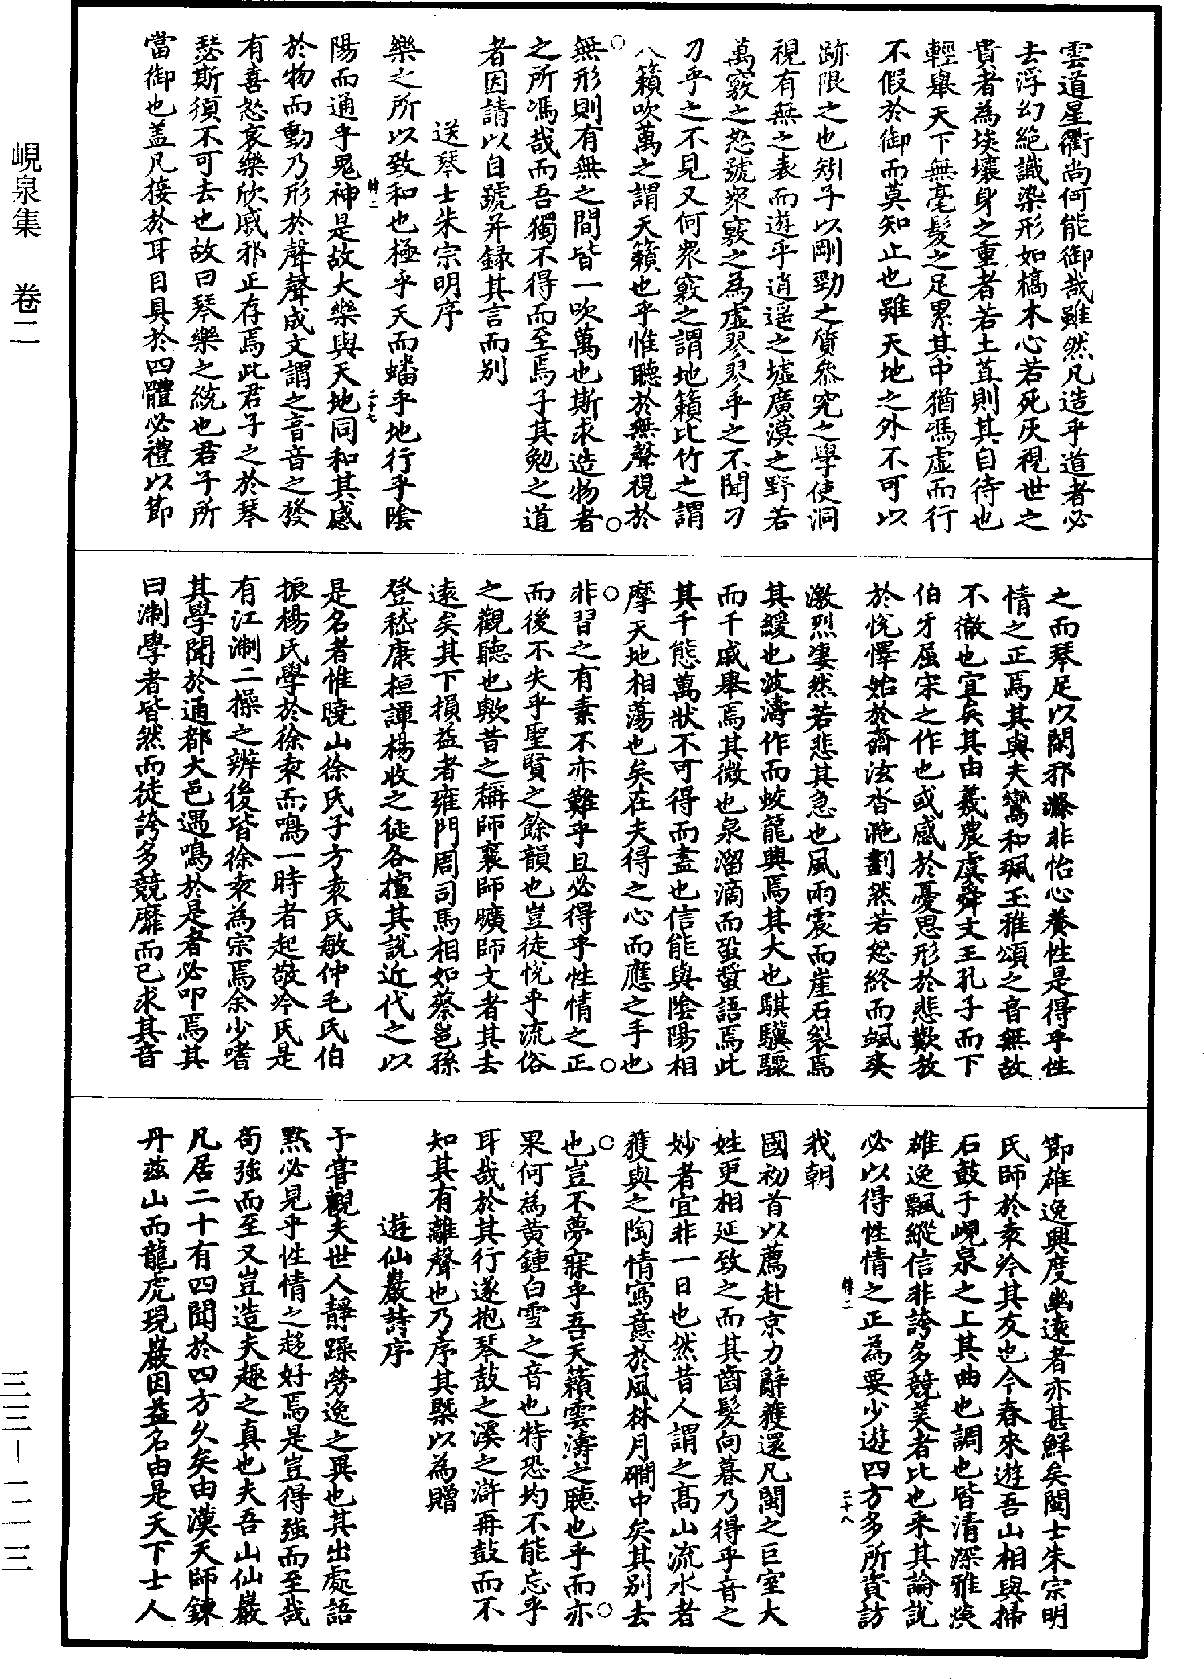 峴泉集　卷二
雲道星衢尚何能御哉雖然凡造乎道者必
去浮幻絶識染形如槁木心若死灰視世之
貴者為埃壤身之重者若土苴則其自待也
輕舉天下無毫髮之足累其中猶馮虛而行
不假於御而莫知止也雖天地之外不可以
跡限之也矧子以剛勁之質叅究之學使洞
視有無之表而遊乎逍遥之墟廣漠之野若
萬竅之怒號衆竅之為虛翏翏乎之不聞刁
刁乎之不見又何衆竅之謂地籟比竹之謂
人籟吹萬之謂天籟也乎惟聽於無聲視於
無形則有無之間皆一吹萬也斯求造物者
之所馮哉而吾獨不得而至焉子其勉之道
者因請以自號并録其言而别
送琴士朱宗明序
樂之所以致和也極乎天而蟠乎地行乎陰
陽而通乎鬼神是故大樂與天地同和其感
於物而動乃形於聲聲成文謂之音音之發
有喜怒哀樂欣戚邪正存焉此君子之於琴
瑟斯須不可去也故曰琴樂之統也君子所
當御也盖凡接於耳目具於四體必禮以節
之而琴足以閑邪滌非怡心養性是得乎性
情之正焉其與夫鸞和珮玉雅頌之音無故
不徹也宜矣其由羲農虞舜文王孔子而下
伯牙屈宋之作也或感於憂思形於悲歎放
於恱懌始於齋泫沓漎劃然若怒終而颯爽
激烈凄然若悲其急也風雨震而崖石裂焉
其緩也波濤作而蛟龍興焉其大也騏驥驟
而千戚舉焉其微也泉溜滴而蛩螿語焉此
其千態萬狀不可得而盡也信能與陰陽相
摩天地相蕩也矣在夫得之心而應之手也
非習之有素不亦難乎且必得乎性情之正
而後不失乎聖賢之餘韻也豈徒恱乎流俗
之觀聽也歟昔之稱師襄師曠師文者其去
遠矣其下損益者雍門周司馬相如蔡邕孫
登嵇康桓譚楊收之徒各擅其說近代之以
是名者惟曉山徐氏子方袁氏敏仲毛氏伯
振楊氏學於徐袁而鳴一時者起敬冷氏是
有江淛二操之辨後皆徐袁為宗焉余少嗜
其學聞於通都大邑遇鳴於是者必叩焉其
曰淛學者皆然而徒誇多競靡而已求其音
節雄逸興度幽遠者亦甚鮮矣閩士朱宗明
氏師於袁冷其友也今春來遊吾山相與掃
石鼓于峴泉之上其曲也調也皆清深雅燠
雄逸飄縱信非誇多競美者比也来其論說
必以得性情之正為要少遊四方多所資訪
我朝
國初首以薦赴京力辭獲還凡閩之巨室大
姓更相延致之而其齒髮向暮乃得乎音之
妙者宜非一日也然昔人謂之髙山流水者
獲與之陶情寫意於風林月磵中矣其别去
也豈不夢寐乎吾天籟雲濤之聽也乎而亦
果何為黄鍾白雪之音也特恐均不能忘乎
耳哉於其行遂抱琴鼓之溪之滸再鼓而不
知其有離聲也乃序其槩以為贈
遊仙巖詩序
予甞觀夫世人靜躁勞逸之異也其出處語
默必見乎性情之趍好焉是豈得強而至哉
苟強而至又豈造夫趣之真也夫吾山仙巖
凡居二十有四聞於四方久矣由漢天師錬
丹兹山而龍虎現巖因益名由是天下士人
三三－二一三